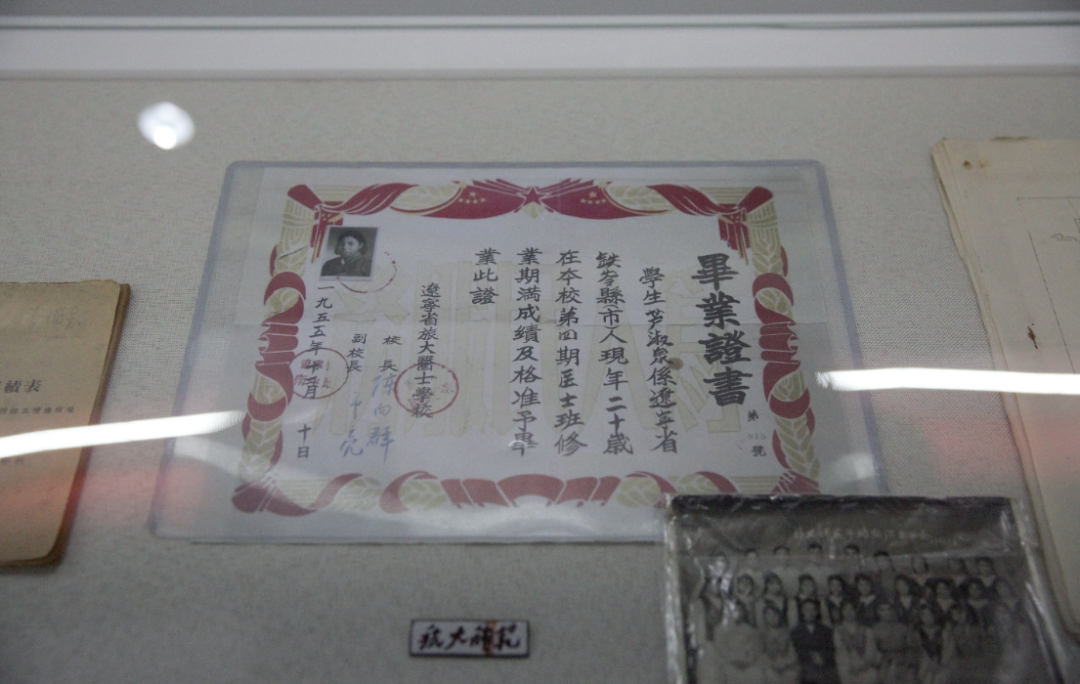 畢業證書
第
號
學生芦淑泉係遼寧省
鉄岺縣市人現年二十歲
在本校第四期医士班修
業期滿成績及格准予畢
業此證
遼寧省旅大醫士學校
校長
副校長
一九五五年
月
十日
績表
旅大師范